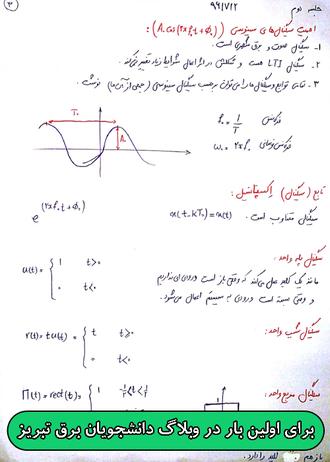 ۳
جلسه دوم
۹۴/۷/۱۲
اهمیت سیگنال‌های سینوسی (A₀ cos(2πf₀t + φ₀)):
۱- سیگنال صوت و برق شهری است.
۲- سیگنال LTI است و شکلش در اثر اعمال شرایط زیاد تغییر نمی‌کند.
۳- تمامی توابع و سیگنال‌ها را می‌توان برحسب سیگنال سینوسی (جمعی از آن‌ها) نوشت.
T₀
A₀
فرکانس f₀ = 1/T
فرکانس زاویه‌ای ω₀ = 2πf₀
تابع (سیگنال) اکسپانسیل:
e^(2πf₀t + φ₀)
سیگنال متناوب است. x(t - kT₀) = x(t)
سیگنال پله واحد:
u(t) = { 1 t>0
0 t<0
مانند یک کلید عمل می‌کند که وقتی باز است ورودی‌ای نداریم
و وقتی بسته است ورودی به سیستم اعمال می‌شود.
سیگنال شیب واحد:
r(t) = t u(t) = { t t>0
0 t<0
سیگنال مربع واحد:
Π(t) = rect(t) = { 1 -1/2<t<1/2
برای اولین بار در وبلاگ دانشجویان برق تبریز